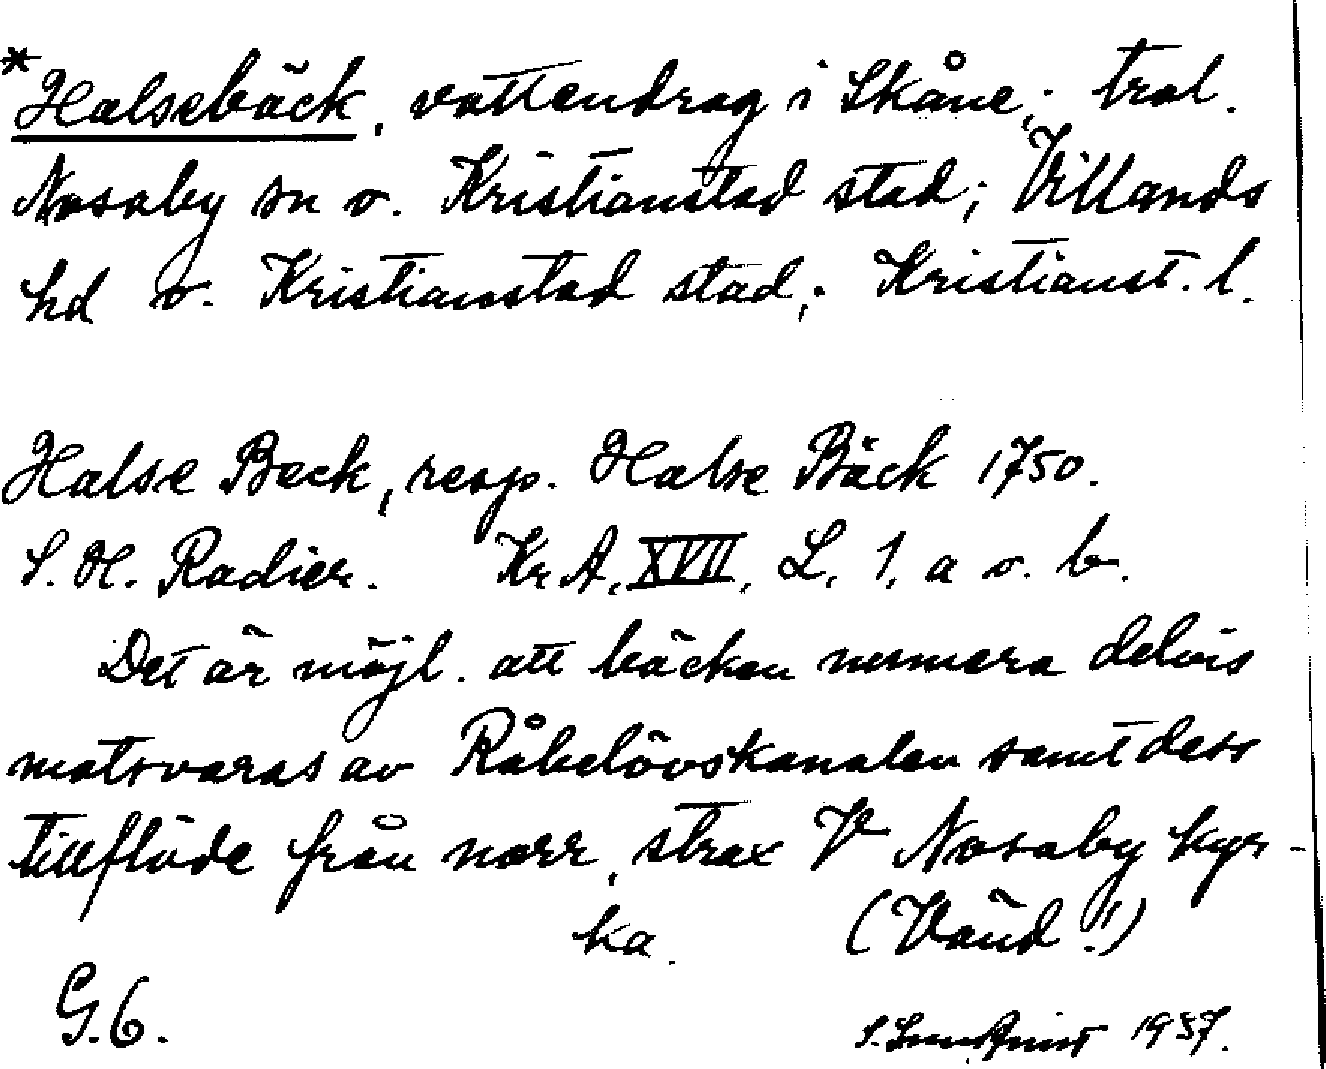 *Halsebäck, vattendrag i Skåne; trol.
Nosaby sn o. Kristianstad stad; Villands
hd o. Kristianstad stad; Kristianst. l.
Halse Beck, resp. Halse Bäck 1750.
S. H. Radier. Kr A, XVII, L, 1, a o. b.
Det är möjl. att bäcken nummera delvis
motsvaras av Råbelövskanalen samt dess
tillflöde från norr, strax V Nosaby kyr-
ka. (Vänd!!)
G. 6.
S. Lundquist 1937.